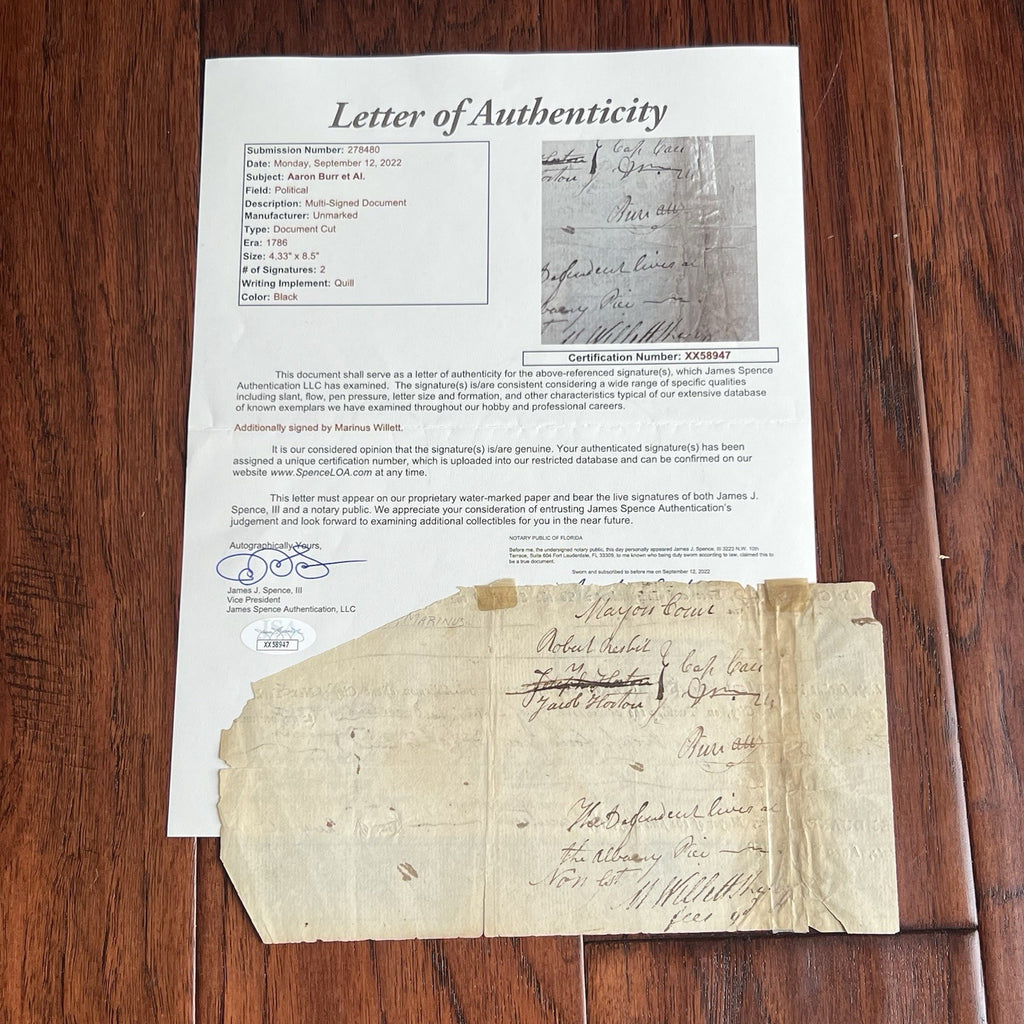 Letter of Authenticity
Submission Number: 278480
Date: Monday, September 12, 2022
Subject: Aaron Burr et Al.
Field: Political
Description: Multi-Signed Document
Manufacturer: Unmarked
Type: Document Cut
Era: 1786
Size: 4.33" x 8.5"
# of Signatures: 2
Writing Implement: Quill
Color: Black
Cap. Cau
Burr att
Defendent lives a
M Willett
Certification Number: XX58947
This document shall serve as a letter of authenticity for the above-referenced signature(s), which James Spence
Authentication LLC has examined. The signature(s) is/are consistent considering a wide range of specific qualities
including slant, flow, pen pressure, letter size and formation, and other characteristics typical of our extensive database
of known exemplars we have examined throughout our hobby and professional careers.
Additionally signed by Marinus Willett.
It is our considered opinion that the signature(s) is/are genuine. Your authenticated signature(s) has been
assigned a unique certification number, which is uploaded into our restricted database and can be confirmed on our
website www.SpenceLOA.com at any time.
This letter must appear on our proprietary water-marked paper and bear the live signatures of both James J.
Spence, III and a notary public. We appreciate your consideration of entrusting James Spence Authentication's
judgement and look forward to examining additional collectibles for you in the near future.
Autographically Yours,
James J. Spence, III
Vice President
James Spence Authentication, LLC
NOTARY PUBLIC OF FLORIDA
Before me, the undersigned notary public, this day personally appeared James J. Spence, III 3223 N.W. 10th
Terrace, Suite 604 Fort Lauderdale, FL 33309, to me known who being duly sworn according to law, claimed this to
be a true document.
Sworn and subscribed to before me on September 12, 2022
JSA
XX58947
MARINUS
Mayors Cour
Robert Nesbit
Joseph Horton
Jacob Horton
Cap. Cau
Burr att
The Defendent lives a
the albany Pier
Non Est
M Willett She
fees